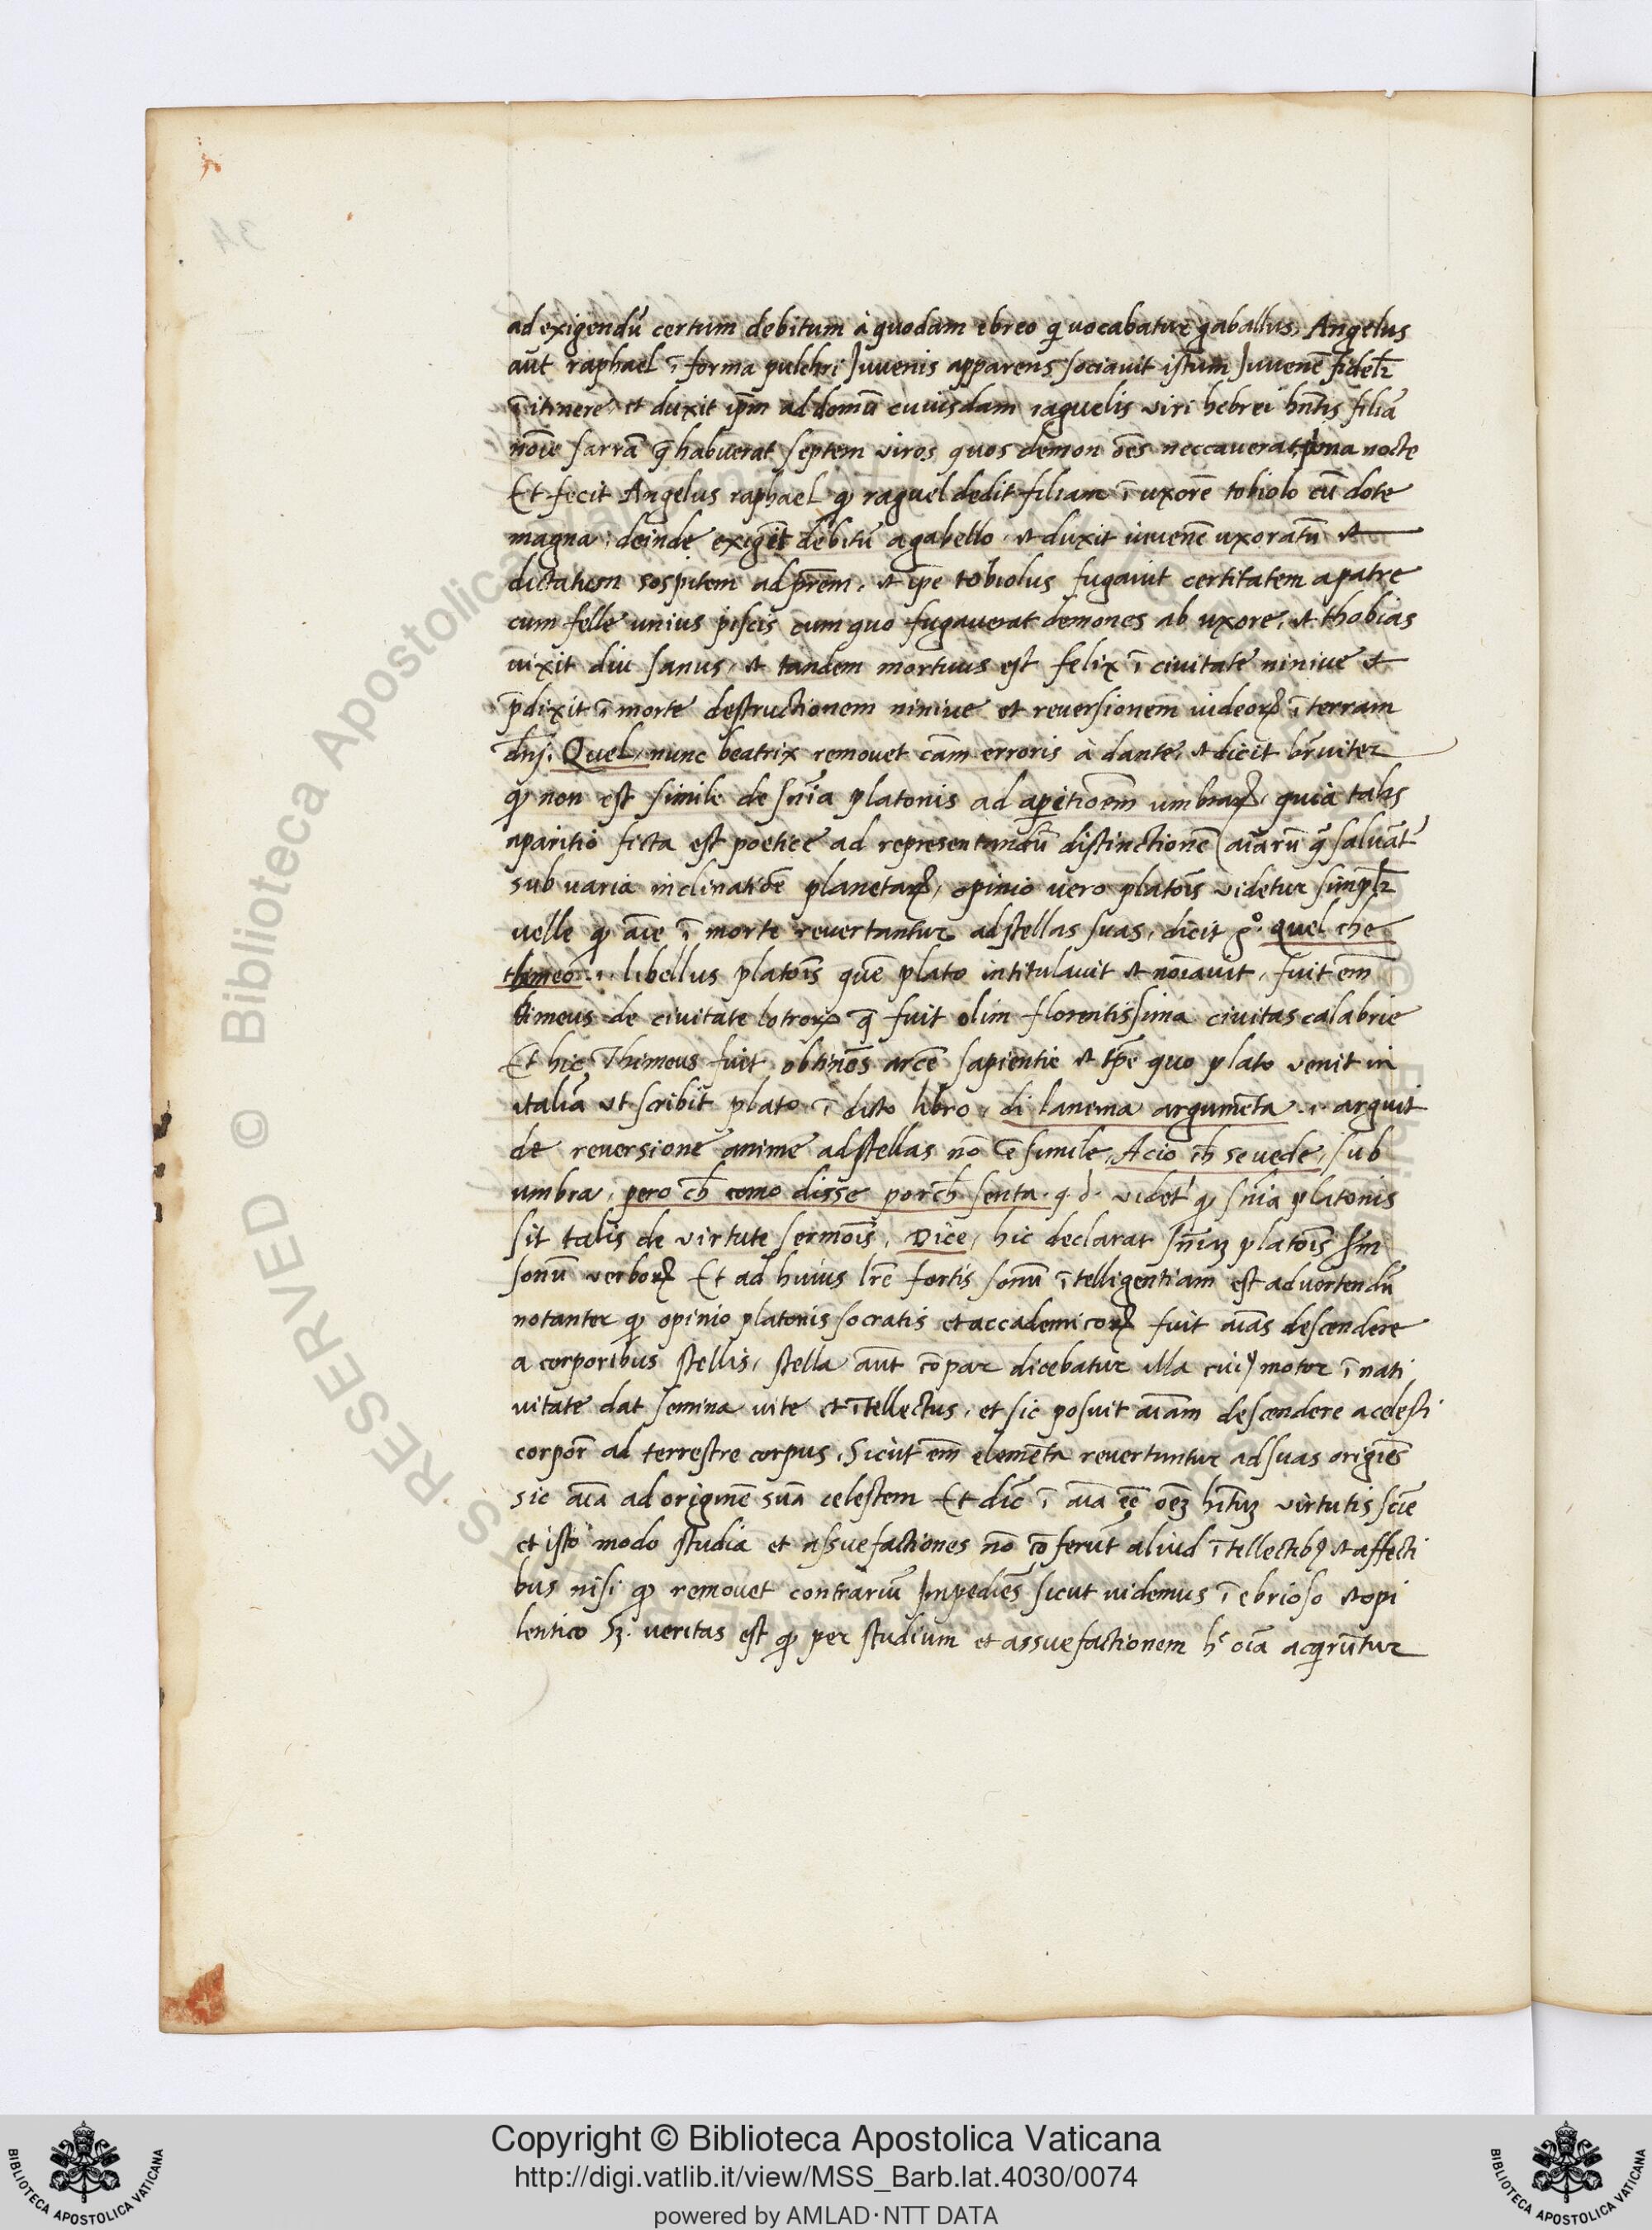 ad exigendū certum debitum à quodam ebreo q̄ uocabatur gaballus, Angelus
aūt raphael ī forma pulchri Juuenis apparens sociauit istum Juuenē fidelr̄
ī itinere, et duxit ip̄m ad domū cuiusdam raguelis viri hebrei hn̄tis filiā
noīe sarrā q̄ habuerat septem viros quos demon oēs neccauerat p̄ma nocte
Et fecit Angelus raphael qꝫ raguel dedit filiam ī uxorē tobiolo cū dote
magna, deinde exigēt debitū a gabello, et duxit iuuenē uxoratū et
dictatum sospitem ad pr̄em, et ip̄e tobiolus fugauit certitatem a patre
cum felle unius piscis cum quo fugauerat demones ab uxore, et thobias
uixit diu sanus, et tandem mortuus est felix ī ciuitate niniue et
p̄dixit ī morte destructionem niniue et reuersionem iudeoꝝ ī terram
dn̄j. Quel, nunc beatrix remouet cām erroris à dante, et dicit br̄uiter
qꝫ non est simile de sn̄ia platonis ad aperitioēm umbraꝝ, quia talis
aparitio ficta est poetice ad representandū distinctionē aīarū q̄ saluāt
sub uaria inclinatiōe planetaꝝ, opinio uero platoīs videtur simplr̄
uelle qꝫ aīe ī morte reuertantur ad stellas suas, dicit gº. quel che
thimeo .i. libellus platoīs quē plato intitulauit et noīauit, fuit em̄
timeus de ciuitate lotroꝝ q̄ fuit olim florentissima ciuitas calabrie
Et hic Thimeus fuit obtinēs arcē sapientie et tp̄e quo plato venit in
italiā ut scribit plato ī dicto libro, di lanema argumēta .i. arguit
de reuersione anime ad stellas nō ē simile, Acio ch̄ se uede, sub
umbra, pero ch̄ como disse porch̄ senta. q. d. videt' qꝫ sn̄ia platonis
sit talis de virtute sermoīs, Dice, hic declarat sn̄iaꝫ platoīs sm̄
sonū verboꝝ Et ad huius lr̄e fortis sonū ītelligentiam est aduertendū
notanter qꝫ opinio platonis socratis et accademicoꝝ fuit aīas descendere
a corporibus stellis, stella aūt cōpar dicebatur illa cuiꝯ motor ī nati
uitate dat semina uite et ītellectus, et sic posuit aīam descendere a celesti
corpor̄ ad terrestre corpus, Sicut em̄ elemēta reuertuntur ad suas origiēs
sic aīa ad originē suā celestem Et dic̄ ī aīa eē oēꝫ hītuꝫ virtutis scīe
et isto modo studia et assuefactiones nō cōferūt aliud ītellectibꝯ et affecti
bus nisi qꝫ remouet contrariū Jmpediēs sicut uidemus ī ebrioso et opi
lentico Sꝫ. ueritas est qꝫ per studium et assuefactionem h' oīa acq̄runtur
Copyright © Biblioteca Apostolica Vaticana
http://digi.vatlib.it/view/MSS_Barb.lat.4030/0074
powered by AMLAD·NTT DATA